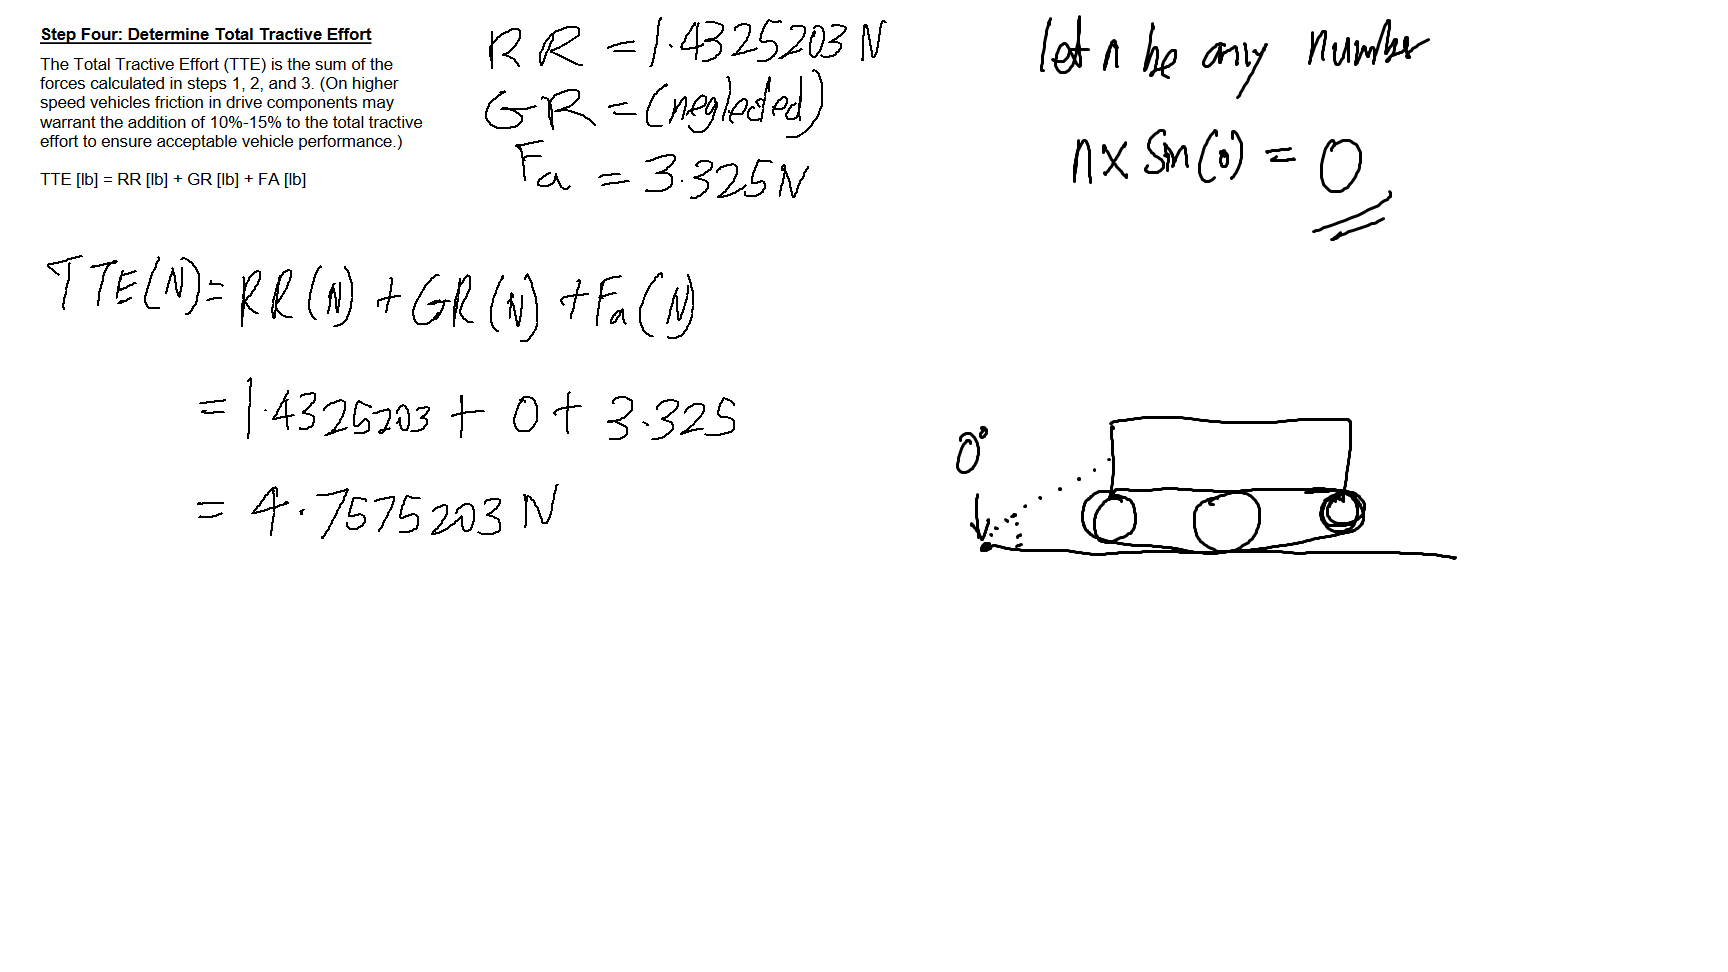 Step Four: Determine Total Tractive Effort
The Total Tractive Effort (TTE) is the sum of the
forces calculated in steps 1, 2, and 3. (On higher
speed vehicles friction in drive components may
warrant the addition of 10%-15% to the total tractive
effort to ensure acceptable vehicle performance.)
TTE [lb] = RR [lb] + GR [lb] + FA [lb]
RR = 1.4325203 N
GR = (neglected)
Fa = 3.325 N
let n be any number
n x Sin(0) = 0
TTE(N) = RR(N) + GR(N) + Fa(N)
= 1.4325203 + 0 + 3.325
= 4.7575203 N
0°